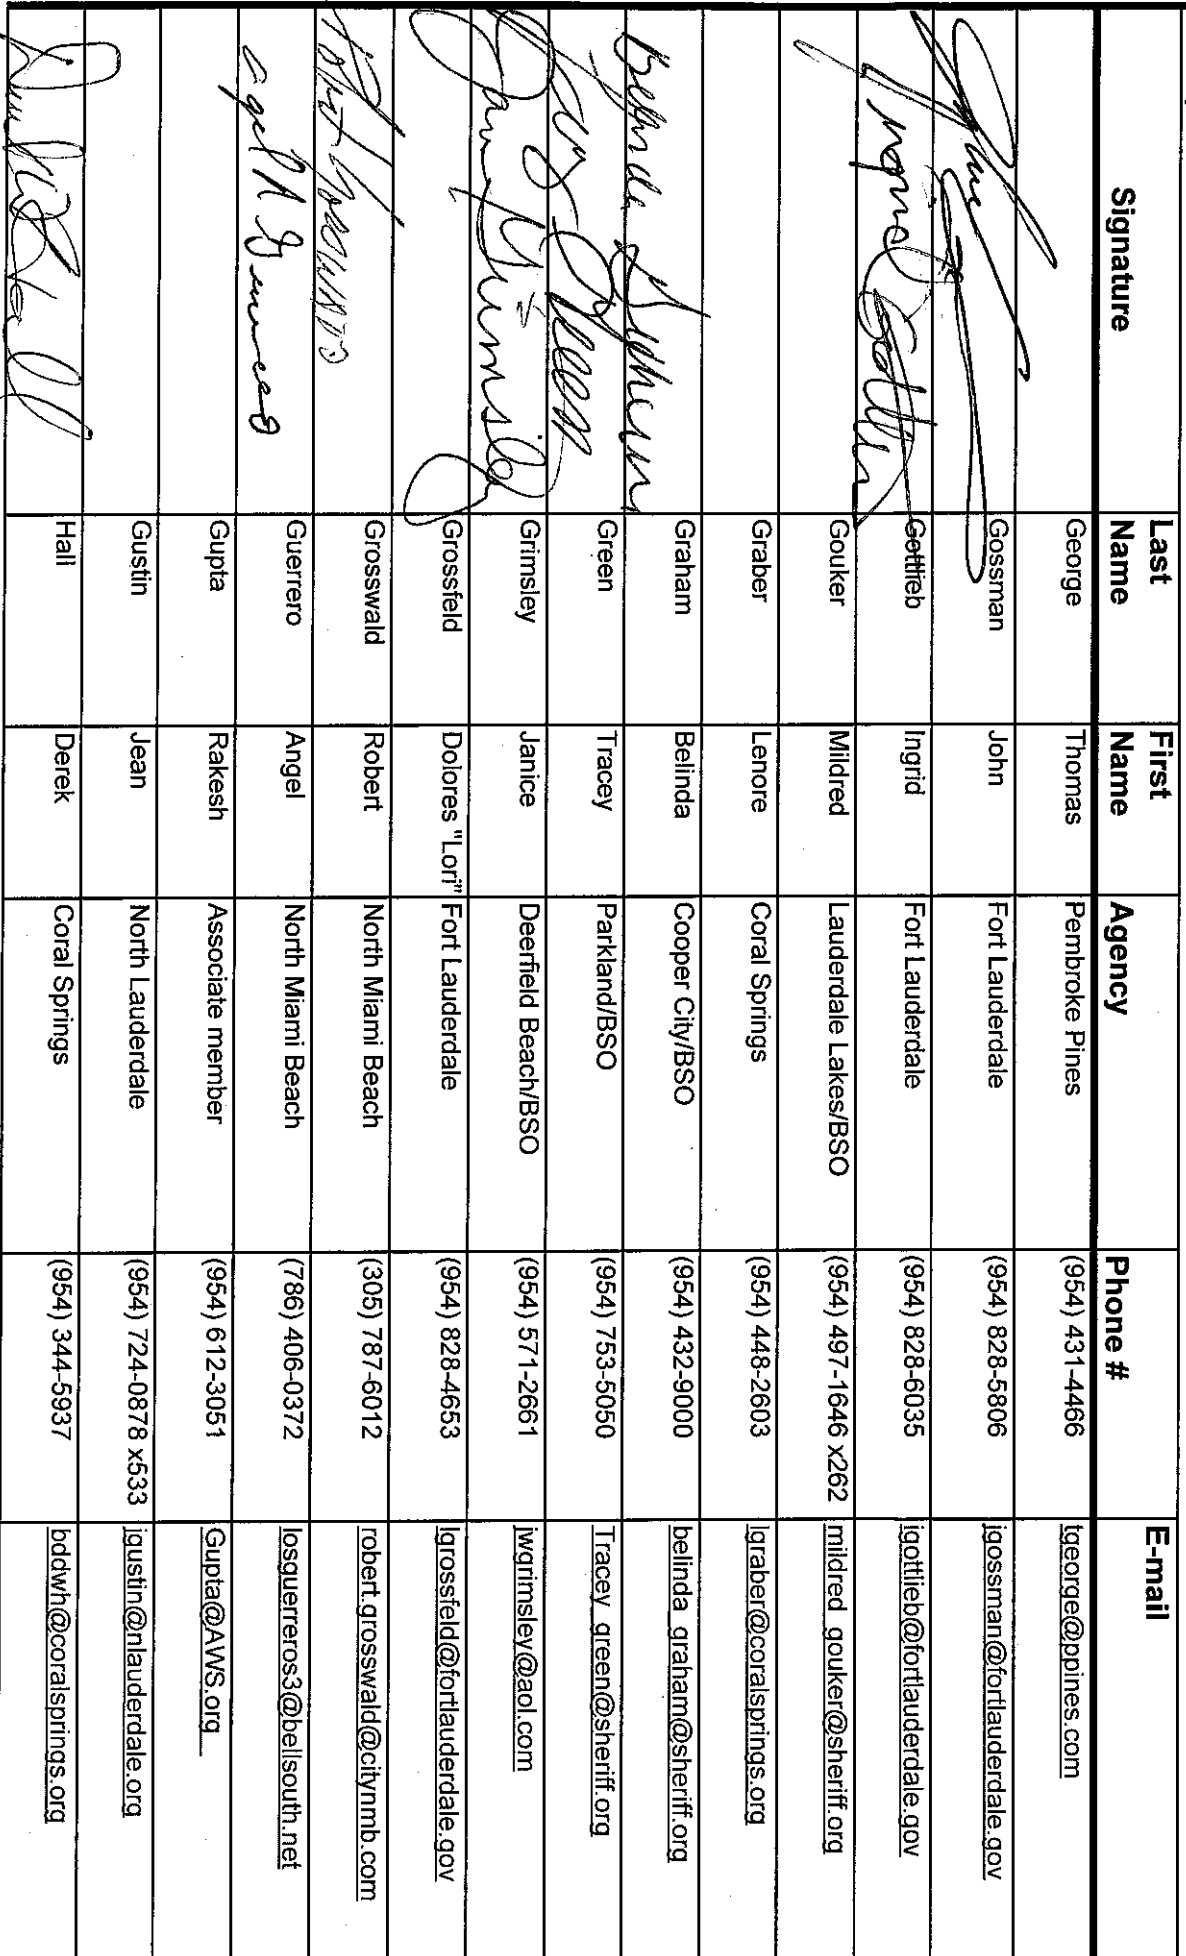 Signature Last Name First Name Agency Phone # E-mail
George Thomas Pembroke Pines (954) 431-4466 tgeorge@ppines.com
Gossman John Fort Lauderdale (954) 828-5806 jgossman@fortlauderdale.gov
Ingrid Gottlieb Gottlieb Ingrid Fort Lauderdale (954) 828-6035 igottlieb@fortlauderdale.gov
Gouker Mildred Lauderdale Lakes/BSO (954) 497-1646 x262 mildred_gouker@sheriff.org
Graber Lenore Coral Springs (954) 448-2603 lgraber@coralsprings.org
Belinda Graham Graham Belinda Cooper City/BSO (954) 432-9000 belinda_graham@sheriff.org
Green Green Tracey Parkland/BSO (954) 753-5050 Tracey_green@sheriff.org
Janice Grimsley Grimsley Janice Deerfield Beach/BSO (954) 571-2661 jwgrimsley@aol.com
Grossfeld Dolores "Lori" Fort Lauderdale (954) 828-4653 lgrossfeld@fortlauderdale.gov
Robert Grosswald Grosswald Robert North Miami Beach (305) 787-6012 robert.grosswald@citynmb.com
Angel Guerrero Guerrero Angel North Miami Beach (786) 406-0372 losguerreros3@bellsouth.net
Gupta Rakesh Associate member (954) 612-3051 Gupta@AWS.org
Gustin Jean North Lauderdale (954) 724-0878 x533 jgustin@nlauderdale.org
Hall Derek Coral Springs (954) 344-5937 bddwh@coralsprings.org